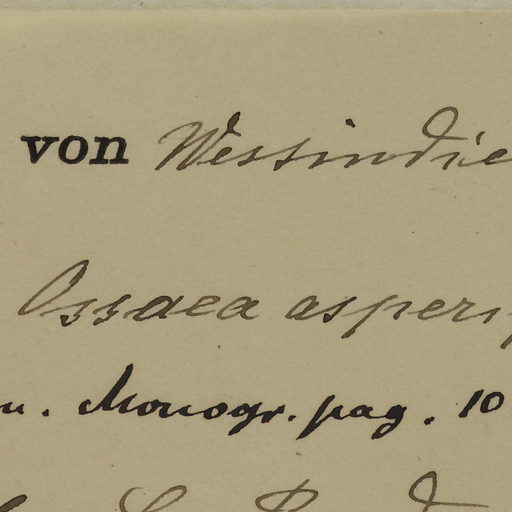 von Wessindie
Ossaea asperi
n. Monogr. pag. 10